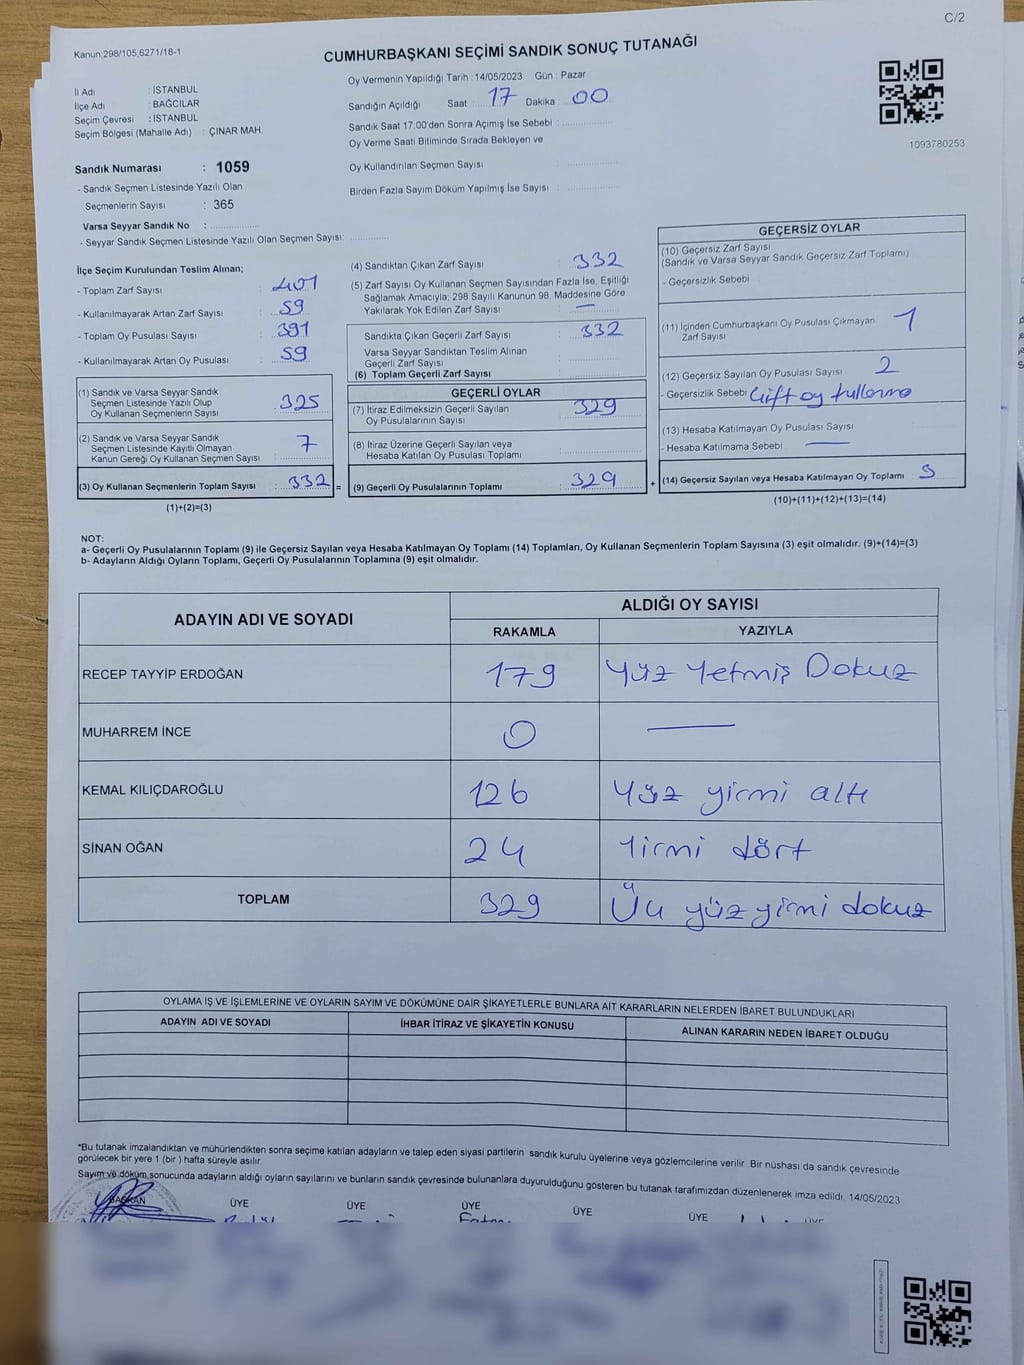 C/2
Kanun:298/105,6271/18-1
CUMHURBAŞKANI SEÇİMİ SANDIK SONUÇ TUTANAĞI
İl Adı : İSTANBUL
İlçe Adı : BAĞCILAR
Seçim Çevresi : İSTANBUL
Seçim Bölgesi (Mahalle Adı) : ÇINAR MAH.
Oy Vermenin Yapıldığı Tarih : 14/05/2023 Gün : Pazar
Sandığın Açıldığı Saat 17 Dakika : 00
Sandık Saat 17:00'den Sonra Açımış İse Sebebi :
Oy Verme Saati Bitiminde Sırada Bekleyen ve
Oy Kullandırılan Seçmen Sayısı :
Birden Fazla Sayım Döküm Yapılmış İse Sayısı :
1093780253
Sandık Numarası : 1059
- Sandık Seçmen Listesinde Yazılı Olan
Seçmenlerin Sayısı : 365
Varsa Seyyar Sandık No :
- Seyyar Sandık Seçmen Listesinde Yazılı Olan Seçmen Sayısı:
İlçe Seçim Kurulundan Teslim Alınan;
- Toplam Zarf Sayısı : 401
- Kullanılmayarak Artan Zarf Sayısı : 59
- Toplam Oy Pusulası Sayısı : 391
- Kullanılmayarak Artan Oy Pusulası : 59
(1) Sandık ve Varsa Seyyar Sandık
Seçmen Listesinde Yazılı Olup
Oy Kullanan Seçmenlerin Sayısı : 325
(2) Sandık ve Varsa Seyyar Sandık
Seçmen Listesinde Kayıtlı Olmayan
Kanun Gereği Oy Kullanan Seçmen Sayısı : 7
(3) Oy Kullanan Seçmenlerin Toplam Sayısı : 332 =
(1)+(2)=(3)
(4) Sandıktan Çıkan Zarf Sayısı : 332
(5) Zarf Sayısı Oy Kullanan Seçmen Sayısından Fazla İse, Eşitliği
Sağlamak Amacıyla; 298 Sayılı Kanunun 98. Maddesine Göre
Yakılarak Yok Edilen Zarf Sayısı : —
Sandıkta Çıkan Geçerli Zarf Sayısı : 332
Varsa Seyyar Sandıktan Teslim Alınan
Geçerli Zarf Sayısı :
(6) Toplam Geçerli Zarf Sayısı :
GEÇERLİ OYLAR
(7) İtiraz Edilmeksizin Geçerli Sayılan
Oy Pusulalarının Sayısı : 329
(8) İtiraz Üzerine Geçerli Sayılan veya
Hesaba Katılan Oy Pusulası Toplamı :
(9) Geçerli Oy Pusulalarının Toplamı : 329 +
GEÇERSİZ OYLAR
(10) Geçersiz Zarf Sayısı
(Sandık ve Varsa Seyyar Sandık Geçersiz Zarf Toplamı) :
- Geçersizlik Sebebi :
(11) İçinden Cumhurbaşkanı Oy Pusulası Çıkmayan : 1
Zarf Sayısı
(12) Geçersiz Sayılan Oy Pusulası Sayısı : 2
- Geçersizlik Sebebi
(13) Hesaba Katılmayan Oy Pusulası Sayısı :
- Hesaba Katılmama Sebebi : —
(14) Geçersiz Sayılan veya Hesaba Katılmayan Oy Toplamı : 3
(10)+(11)+(12)+(13)=(14)
NOT:
a- Geçerli Oy Pusulalarının Toplamı (9) ile Geçersiz Sayılan veya Hesaba Katılmayan Oy Toplamı (14) Toplamları, Oy Kullanan Seçmenlerin Toplam Sayısına (3) eşit olmalıdır. (9)+(14)=(3)
b- Adayların Aldığı Oyların Toplamı, Geçerli Oy Pusulalarının Toplamına (9) eşit olmalıdır.
ADAYIN ADI VE SOYADI ALDIĞI OY SAYISI
RAKAMLA YAZIYLA
RECEP TAYYİP ERDOĞAN 179 Yüz Yetmiş Dokuz
MUHARREM İNCE 0 —
KEMAL KILIÇDAROĞLU 126 Yüz yirmi altı
SİNAN OĞAN 24 Yirmi dört
TOPLAM 329 Üç yüz yirmi dokuz
OYLAMA İŞ VE İŞLEMLERİNE VE OYLARIN SAYIM VE DÖKÜMÜNE DAİR ŞİKAYETLERLE BUNLARA AİT KARARLARIN NELERDEN İBARET BULUNDUKLARI
ADAYIN ADI VE SOYADI İHBAR İTİRAZ VE ŞİKAYETİN KONUSU ALINAN KARARIN NEDEN İBARET OLDUĞU
*Bu tutanak imzalandıktan ve mühürlendikten sonra seçime katılan adayların ve talep eden siyasi partilerin sandık kurulu üyelerine veya gözlemcilerine verilir. Bir nüshası da sandık çevresinde
görülecek bir yere 1 (bir ) hafta süreyle asılır.
Sayım ve döküm sonucunda adayların aldığı oyların sayılarını ve bunların sandık çevresinde bulunanlara duyurulduğunu gösteren bu tutanak tarafımızdan düzenlenerek imza edildi. 14/05/2023
BAŞKAN ÜYE ÜYE ÜYE ÜYE ÜYE ÜYE